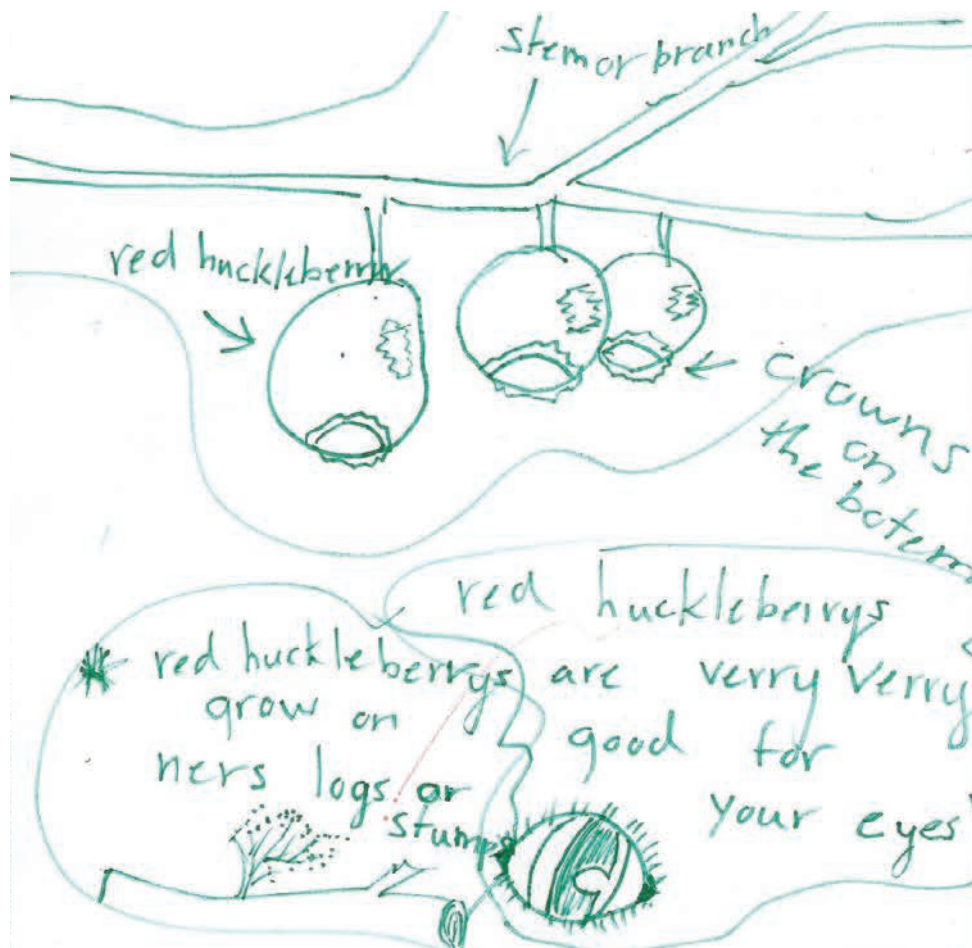 stem or branch
red huckleberry
crowns
on
the botem
red huckleberrys
are verry verry
good for
your eyes
red huckleberrys
grow on
ners logs or
stumps